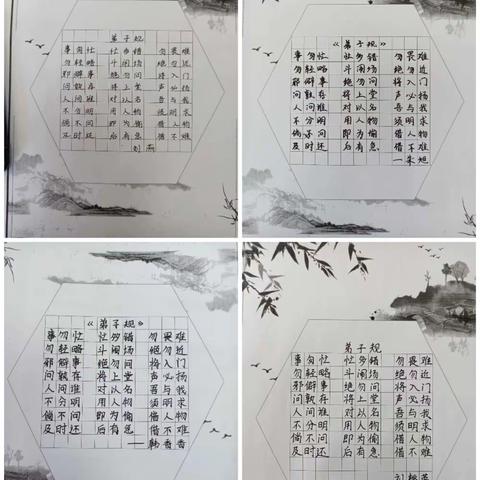 弟子规
事勿忙 忙多错 勿畏难
勿轻略 斗闹场 绝勿近
邪僻事 绝勿问 将入门
问孰存 将上堂 声必扬
人问谁 对以名 吾与我
不分明 用人物 须明求
倘不问 即为偷 借人物
及时还 后有急 借不难
《弟子规》
事勿忙 忙多错 勿畏难
勿轻略 斗闹场 绝勿近
邪僻事 绝勿问 将入门
问孰存 将上堂 声必扬
人问谁 对以名 吾与我
不分明 用人物 须明求
倘不问 即为偷 借人物
及时还 后有急 借不难
《弟子规》
事勿忙 忙多错 勿畏难
勿轻略 斗闹场 绝勿近
邪僻事 绝勿问 将入门
问孰存 将上堂 声必扬
人问谁 对以名 吾与我
不分明 用人物 须明求
倘不问 即为偷 借人物
及时还 后有急 借不难
弟子规
事勿忙 忙多错 勿畏难
勿轻略 斗闹场 绝勿近
邪僻事 绝勿问 将入门
问孰存 将上堂 声必扬
人问谁 对以名 吾与我
不分明 用人物 须明求
倘不问 即为偷 借人物
及时还 后有急 借不难